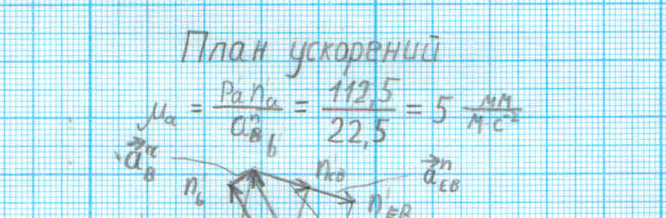 План ускорений
μa = Pa na / aBn = 112,5 / 22,5 = 5 мм / м c⁻²
b'
aB nCB aCBn
nb